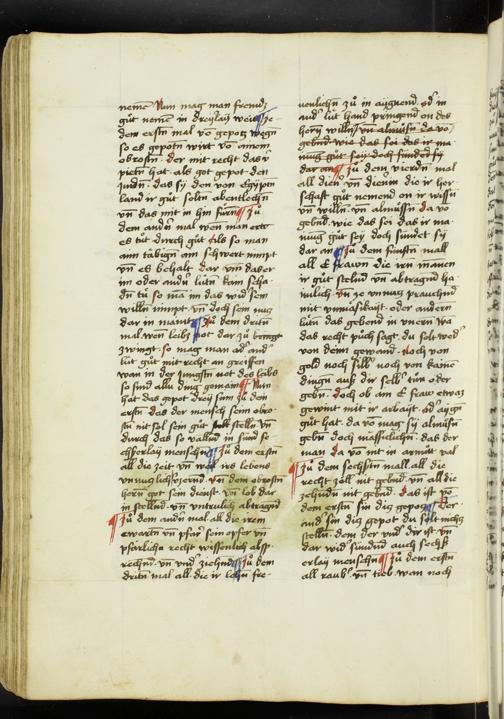 nemē Nun mag man fremdʒ
gūt nemē in dreylaÿ weiß ze
dem erstn mal vō gepotz wegn
so es gepotn wirt vō aīnem
obrostn der mit recht das ʒ
pietn hat als got gepot den
Judn das sy den von egyptn
land ir gut soltn abentlechn
vn̄ das mit in hin fūrn Zu
dem andn mal wen man ertz
es tūt durch gūt als so man
ann tābign ain schwert nimpt
vn̄ es behalt dar vm̄ das er
im oder andn lūtn kain scha
dn tū so ma im das wid seim
willn nimpt vn̄ doch seim nutz
dar in maint Zu dem dritn
mal wen leibs not dar zū bringt
zwingt so mag man ad and
lut gūt mit recht an greiffen
wan in der jungstn not des leibs
so sind allu ding gemain Nun
hat das gepot drey sūn zu dem
erstn das der mensch seim obro
stn nit sol sein gūt stelln vn̄
durch das so vallnd in sūnd se
chßerlay menschn Zu dem erstn
all die zeit vn̄ irs lebens
vnnutzlich verzernd vn̄ dem obrostn
herrn got sein dienst vn̄ lob dar
in stelnd vn̄ untrulich abtragnd
Zu dem andn mal all die irem
ewartn vn̄ pfar sein opfer vn̄
pfärlichn recht wissenlich abß
rechnd vn̄ vnd ziehnd Zu dem
dritn mal all die ir lehn fre
uenlichn zū in aignend od in
and lut hand pringend on des
hern willn vn̄ almūsn da vo
gebnd wie das sei das ir ma
nung gūt sey doch sūndnd sy
dar an Zu dem vierdn mal
all dien vn̄ dienin die ir her
schaft gūt nemend on ir wissn
vn̄ willn vn̄ almūsn da vo
gebnd wie das sei das ir ma
nung gūt sey doch sūndet sy
dar an Zu dem fūnftn mall
all E frawn die irn mānen
ir gūt stelnd vn̄ abtragnd ha
imlich vn̄ ze vnnutz prauchnd
mit vnmässikait oder andern
lūtn das gebend in vnern wā
das recht pūch sagt du solt wed
von deim gewand noch von
gold noch silb noch von kainē
dingn auß dir selb tūn oder
gebn doch ob ain E fraw etwaz
gewint mit ir arbait od aign
gūt hat da vo mag sy almūsn
gebn doch mässiclichn das der
man da vo nit in armūt val
Zu dem sechstn mall all die
recht zöll nit gebnd vn̄ all die
zehndn nit gebnd das ist vō
dem erstn sin diß gepotz Der
and sin diß gepot du solt nichtz
stelln dem der vnd dir ist vn̄
dar wid sūndnd auch sechß
erlay menschn Zu dem erstn
all raub vn̄ dieb wan noch